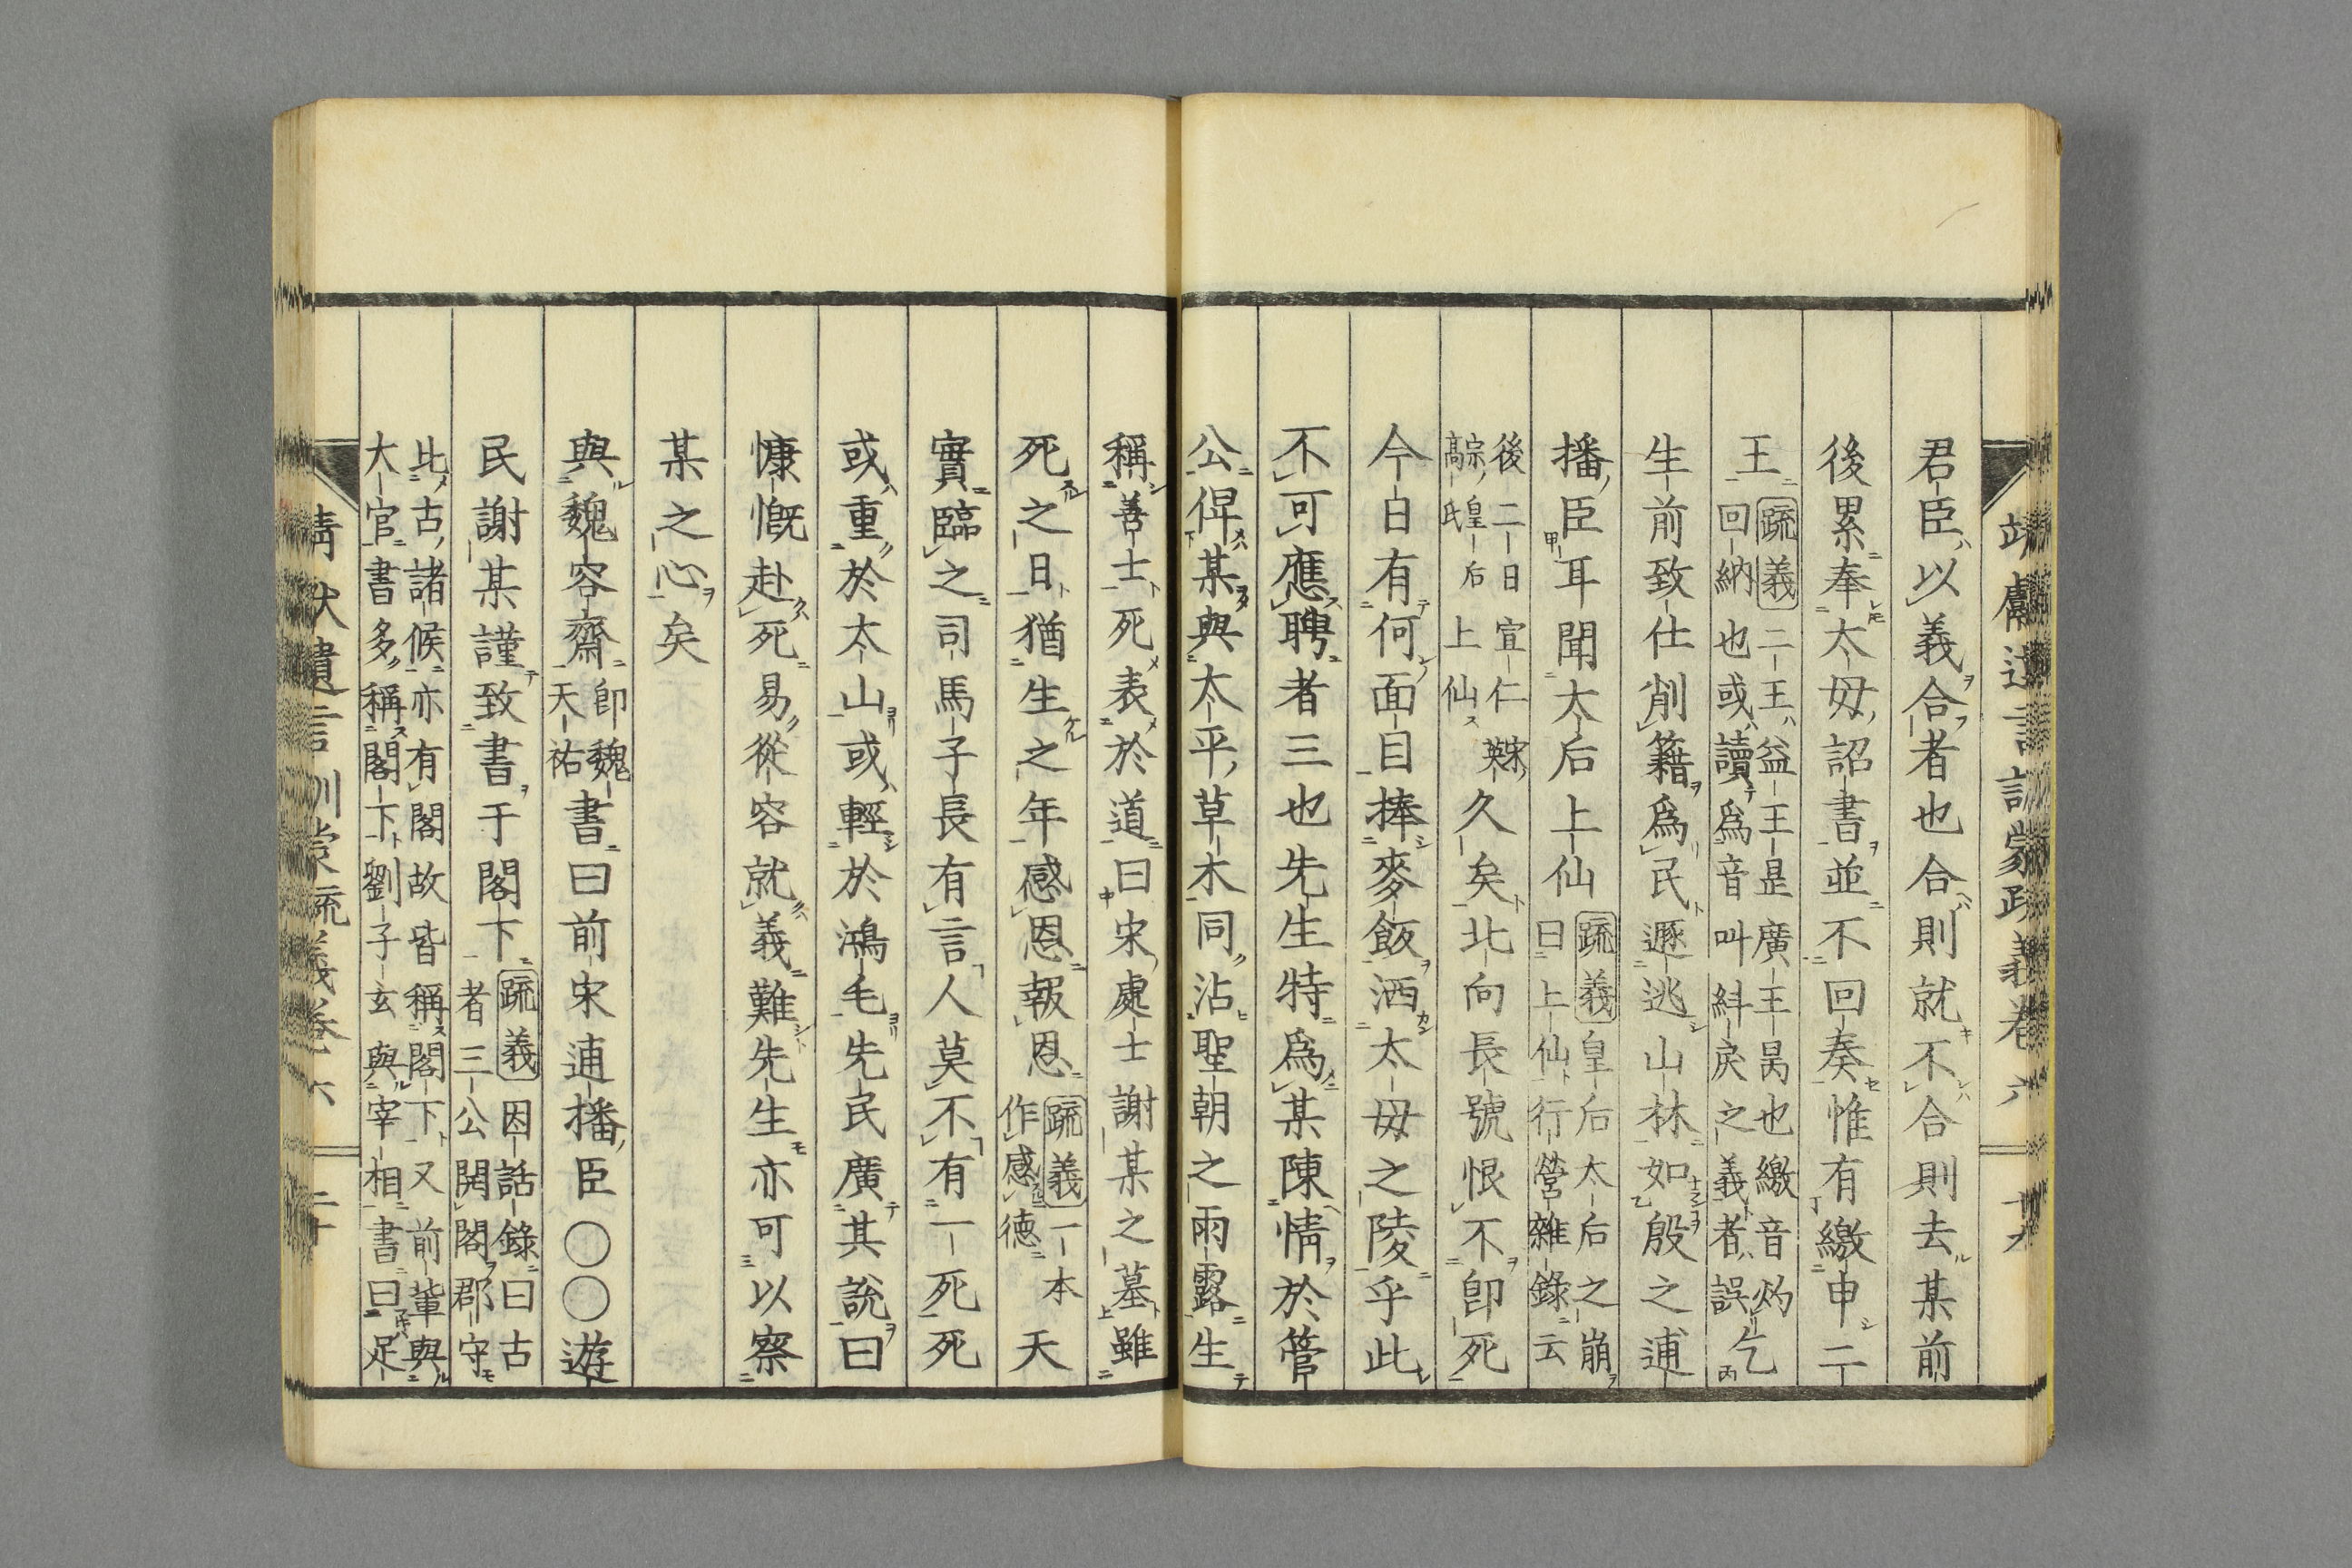 君臣以義合者也合則就不合則去某前
後累奉太毋詔書並不回奏惟有繳申二
王疏義二王益王是廣王昺也繳音灼回納也或讀爲音叫糾戾之義者誤乞
生前致仕削籍爲民遯逃山林如殷之逋
播臣耳聞太后上仙疏義皇后太后之崩曰上仙行營雜錄云
後二日宣仁高宗皇后上仙英宋久矣北向長號恨不卽死
今白有何面目捧麥飯洒太毋之陵乎此
不可應聘者三也先生特爲某陳情於管
公俾某與太平草木同沾聖朝之雨露生
稱善士死表於道曰宋處士謝某之墓雖
死之日猶生之年感恩報恩疏義一本作感德天
實臨之司馬子長有言人莫不有一死死
或重於太山或輕於鴻毛先民廣其說曰
慷慨赴死易從容就義難先生亦可以察
某之心矣
與魏容齋卽魏天祐書曰前宋逋播臣○○遊
民謝某謹致書于閣下疏義因話錄曰古者三公開閣郡守
比古諸候亦有閣故皆稱閣下又前輩與
大官書多稱閣下劉子玄與宰相書曰足